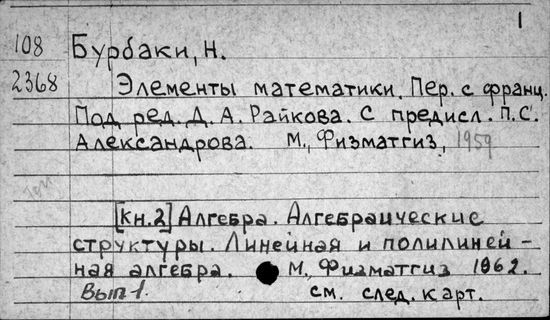 1
108 Бурбаки, Н.
2368 Элементы математики. Пер. с франц.
Под ред. Д. А. Райкова. С предисл. П.С.
Александрова. М., Физматгиз, 1959
[кн.2] Алгебра. Алгебраические
структуры. Линейная и полилиней-
ная алгебра. М., Физматгиз 1962.
Вып 1. см. след. карт.